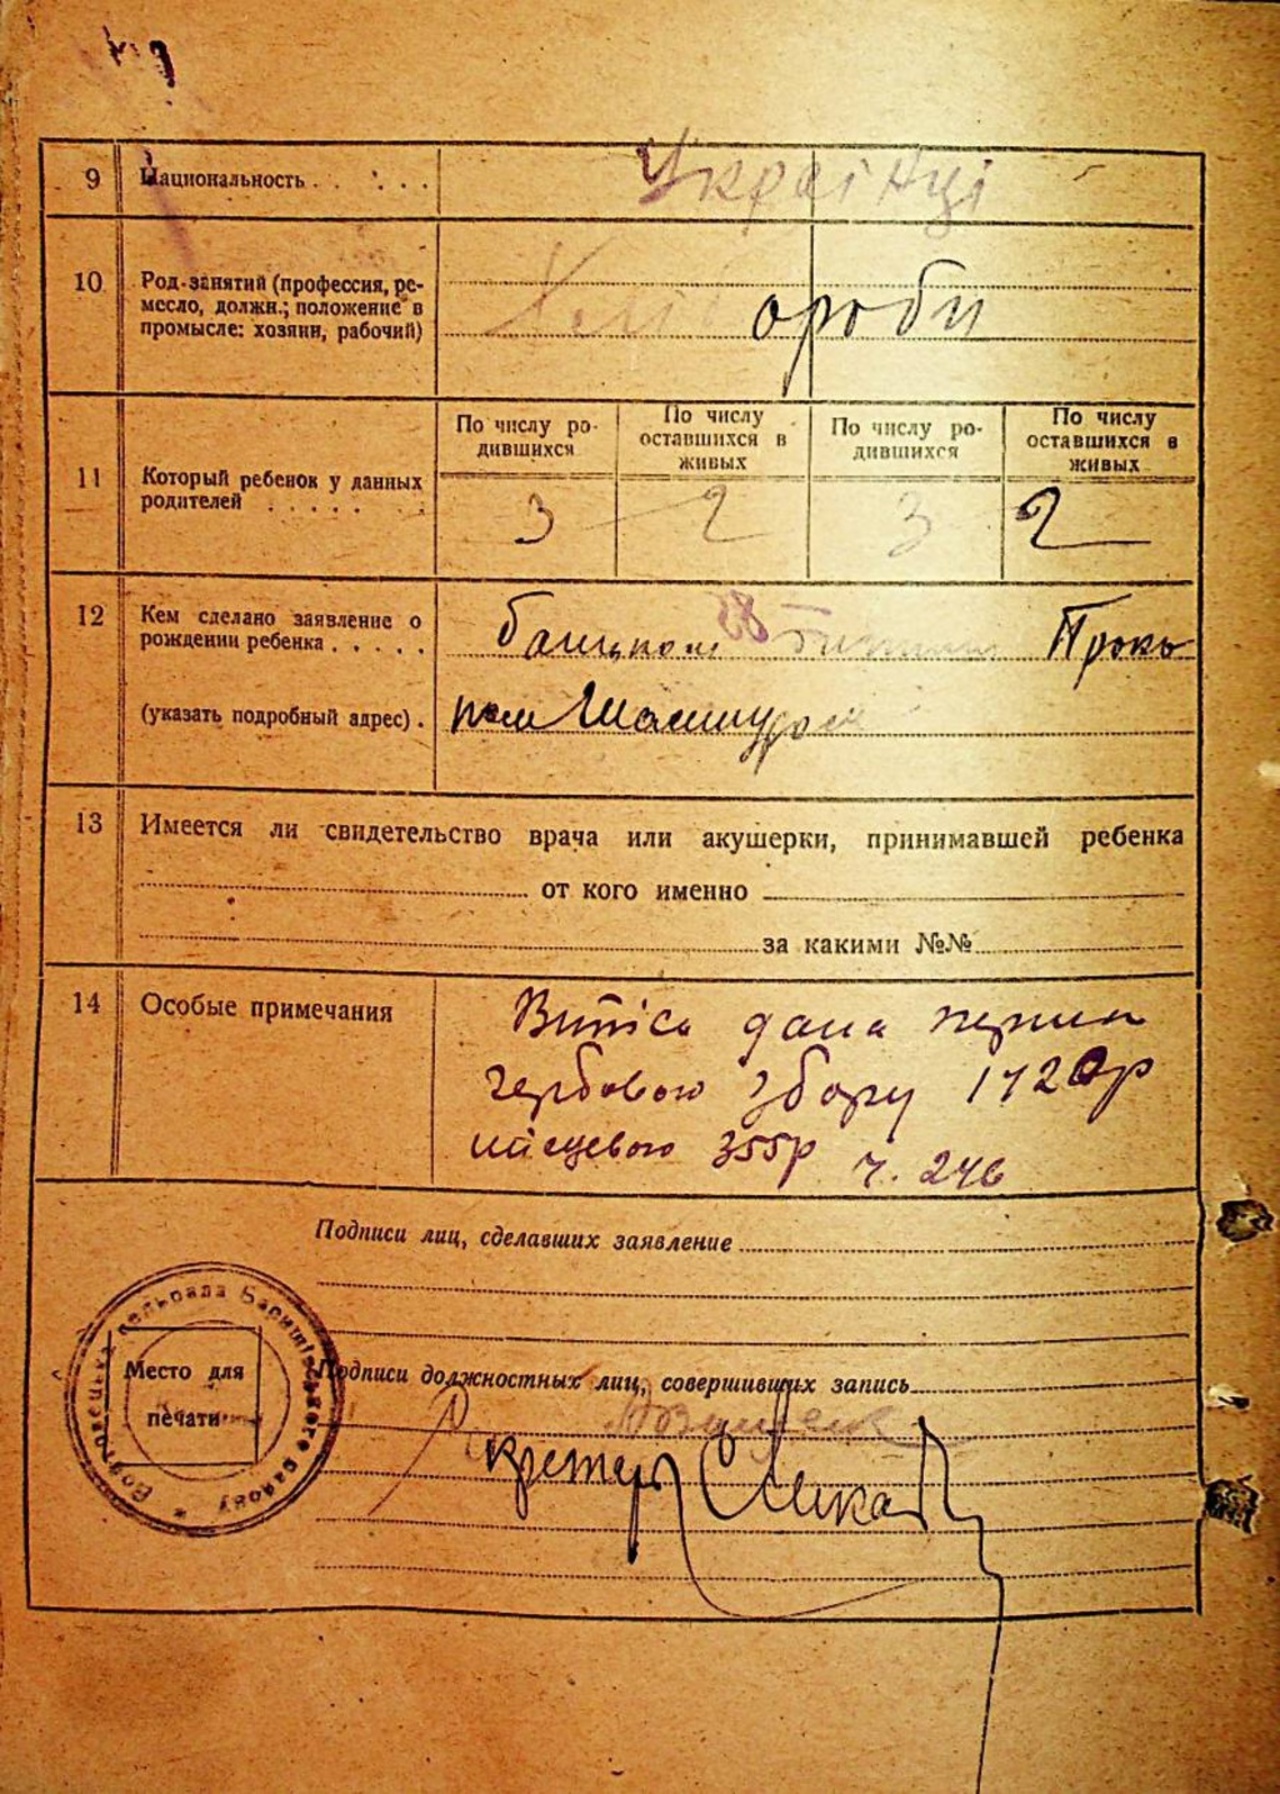 9 Национальность . . . . . Українці
10 Род занятий (профессия, ре-
месло, должн.; положение в
промысле: хозяин, рабочий)
ороби
По числу ро-
дившихся
По числу
оставшихся в
живых
По числу ро-
дившихся
По числу
оставшихся в
живых
11 Который ребенок у данных
родителей . . . . . . .
3 2 3 2
12 Кем сделано заявление о
рождении ребенка . . . . . Прокo
(указать подробный адрес) .
13 Имеется ли свидетельство врача или акушерки, принимавшей ребенка
от кого именно
за какими №№
14 Особые примечания
Випісь дана
гербового збору 1720р
місцевого 355р ч. 246
Подписи лиц, сделавших заявление
Место для
печати
Подписи должностных лиц, совершивших запись